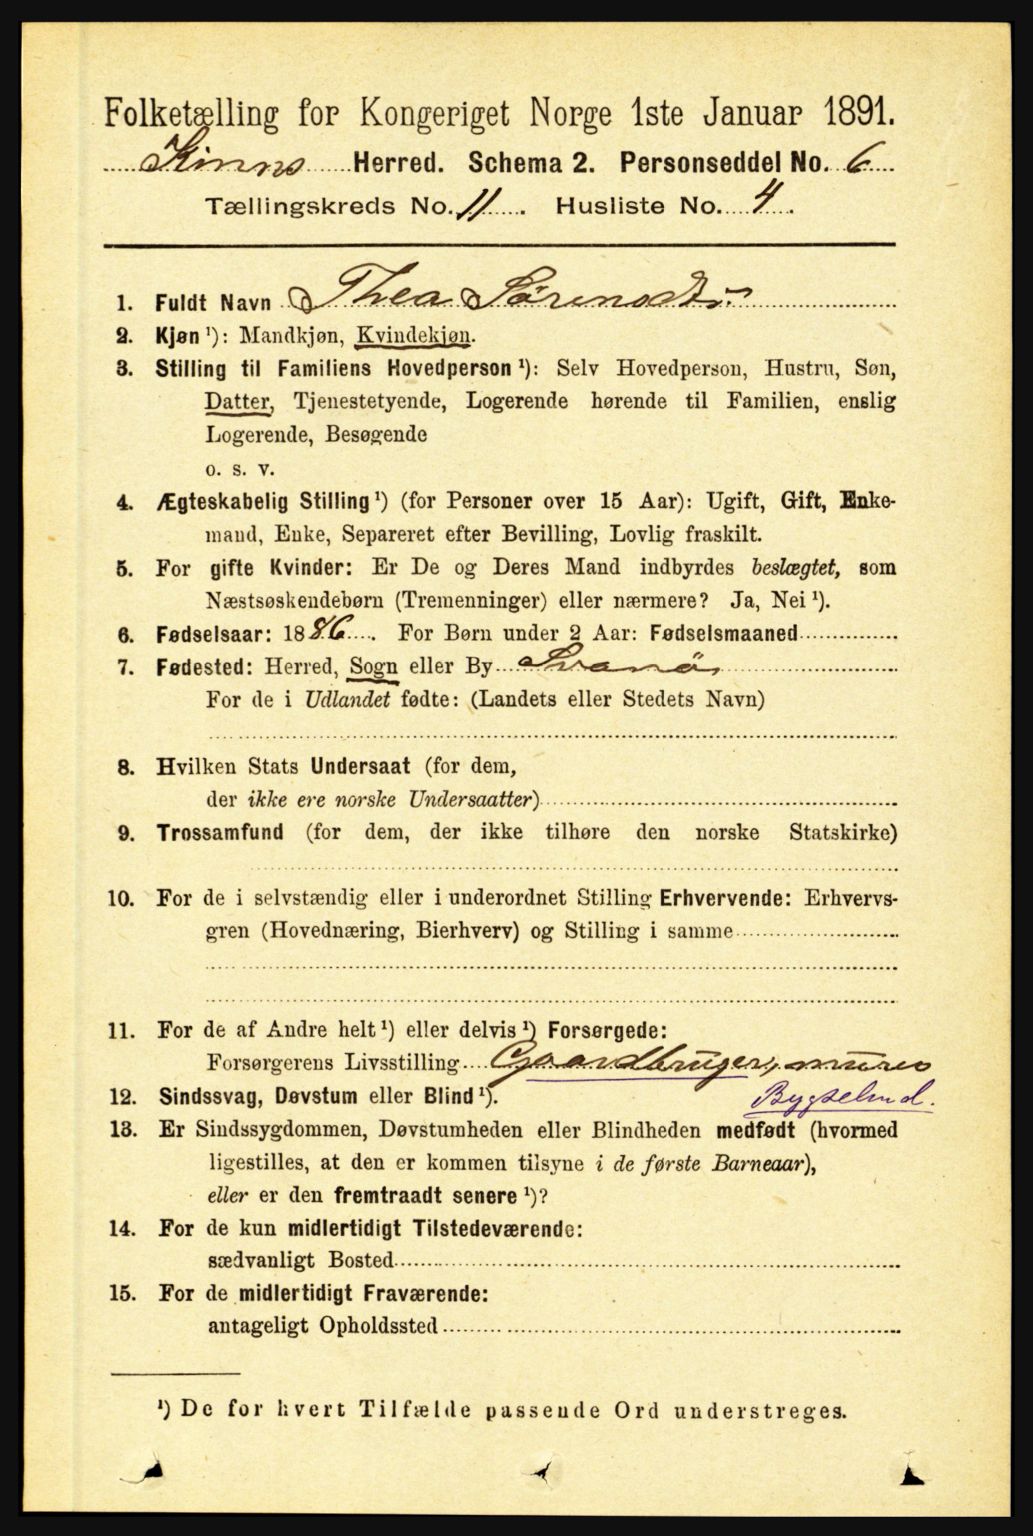 Folketælling for Kongeriget Norge 1ste Januar 1891.
Kinns Herred. Schema 2. Personseddel No. 6
Tællingskreds No. 11. Husliste No. 4.
1. Fuldt Navn Thea Sørensdtr.
2. Kjøn ¹): Mandkjøn, Kvindekjøn.
3. Stilling til Familiens Hovedperson ¹): Selv Hovedperson, Hustru, Søn,
Datter, Tjenestetyende, Logerende hørende til Familien, enslig
Logerende, Besøgende
o. s. v.
4. Ægteskabelig Stilling ¹) (for Personer over 15 Aar): Ugift, Gift, Enke-
mand, Enke, Separeret efter Bevilling, Lovlig fraskilt.
5. For gifte Kvinder: Er De og Deres Mand indbyrdes beslægtet, som
Næstsøskendebørn (Tremenninger) eller nærmere? Ja, Nei ¹).
6. Fødselsaar: 1886. For Børn under 2 Aar: Fødselsmaaned
7. Fødested: Herred, Sogn eller By Svanö
For de i Udlandet fødte: (Landets eller Stedets Navn)
8. Hvilken Stats Undersaat (for dem,
der ikke ere norske Undersaatter)
9. Trossamfund (for dem, der ikke tilhøre den norske Statskirke)
10. For de i selvstændig eller i underordnet Stilling Erhvervende: Erhvervs-
gren (Hovednæring, Bierhverv) og Stilling i samme
11. For de af Andre helt ¹) eller delvis ¹) Forsørgede:
Forsørgerens Livsstilling Gaardbruger, murer
Bygselmd.
12. Sindssvag, Døvstum eller Blind ¹).
13. Er Sindssygdommen, Døvstumheden eller Blindheden medfødt (hvormed
ligestilles, at den er kommen tilsyne i de første Barneaar),
eller er den fremtraadt senere ¹)?
14. For de kun midlertidigt Tilstedeværende:
sædvanligt Bosted
15. For de midlertidigt Fraværende:
antageligt Opholdssted
¹) De for hvert Tilfælde passende Ord understreges.